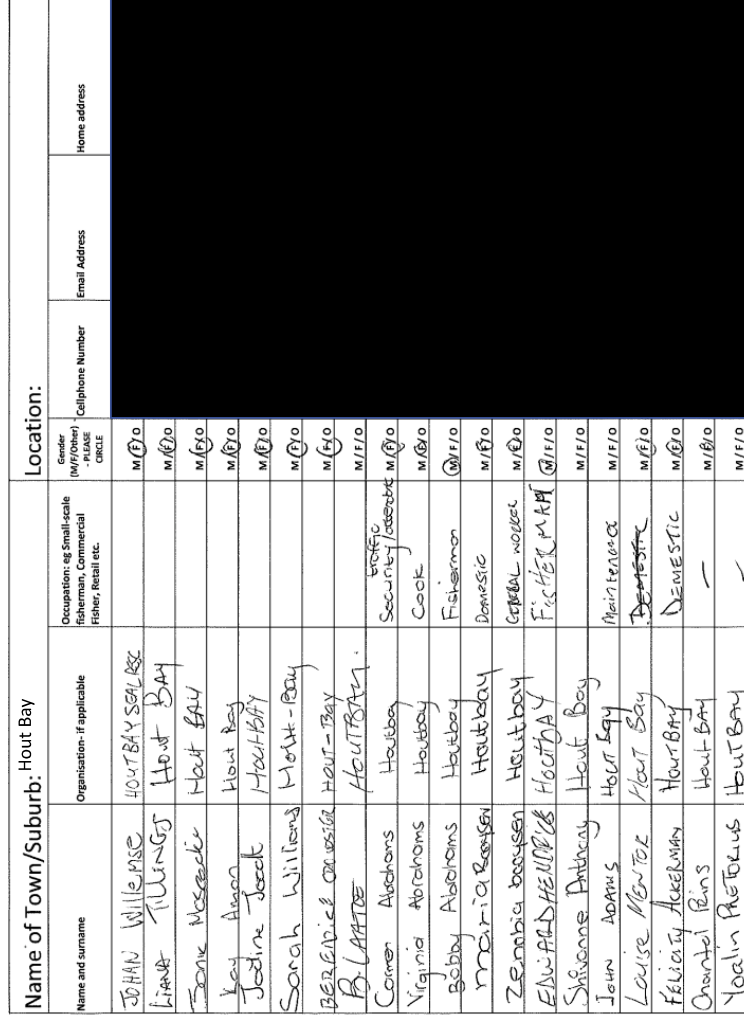 Name of Town/Suburb: Hout Bay Location:
Name and surname Organisation- if applicable Occupation: eg Small-scale fisherman, Commercial Fisher, Retail etc. Gender (M/F/Other) - PLEASE CIRCLE Cellphone Number Email Address Home address
JOHAN Willemse HOUTBAY SEAL M/F/O
Liana Hout BAY M/F/O
Hout BAY M/F/O
Hout Bay M/F/O
HoutBAY M/F/O
Sarah Williams Hout-Bay M/F/O
BERENICE HOUT-BAY M/F/O
HOUTBAY. M/F/O
Abrahams Houtbay traffic Security M/F/O
Virginia Abrahams Houtbay Cook M/F/O
Bobby Abrahams Houtbay Fisherman M/F/O
maria Booysen Houtbay Domestic M/F/O
Zenobia booysen Houtbay GENERAL WORKER M/F/O
EDWARD HENDRICKS HoutBAY FISHERMAN M/F/O
Anthony Hout Bay M/F/O
John ADAMS HOUT Bay Maintenance M/F/O
Louise MENTOR Hout Bay DOMESTIC M/F/O
FELICITY ACKERMAN HOUTBAY DEMESTIC M/F/O
Chantal Prins Hout-BAY — M/F/O
PRETORIUS HOUTBAY M/F/O